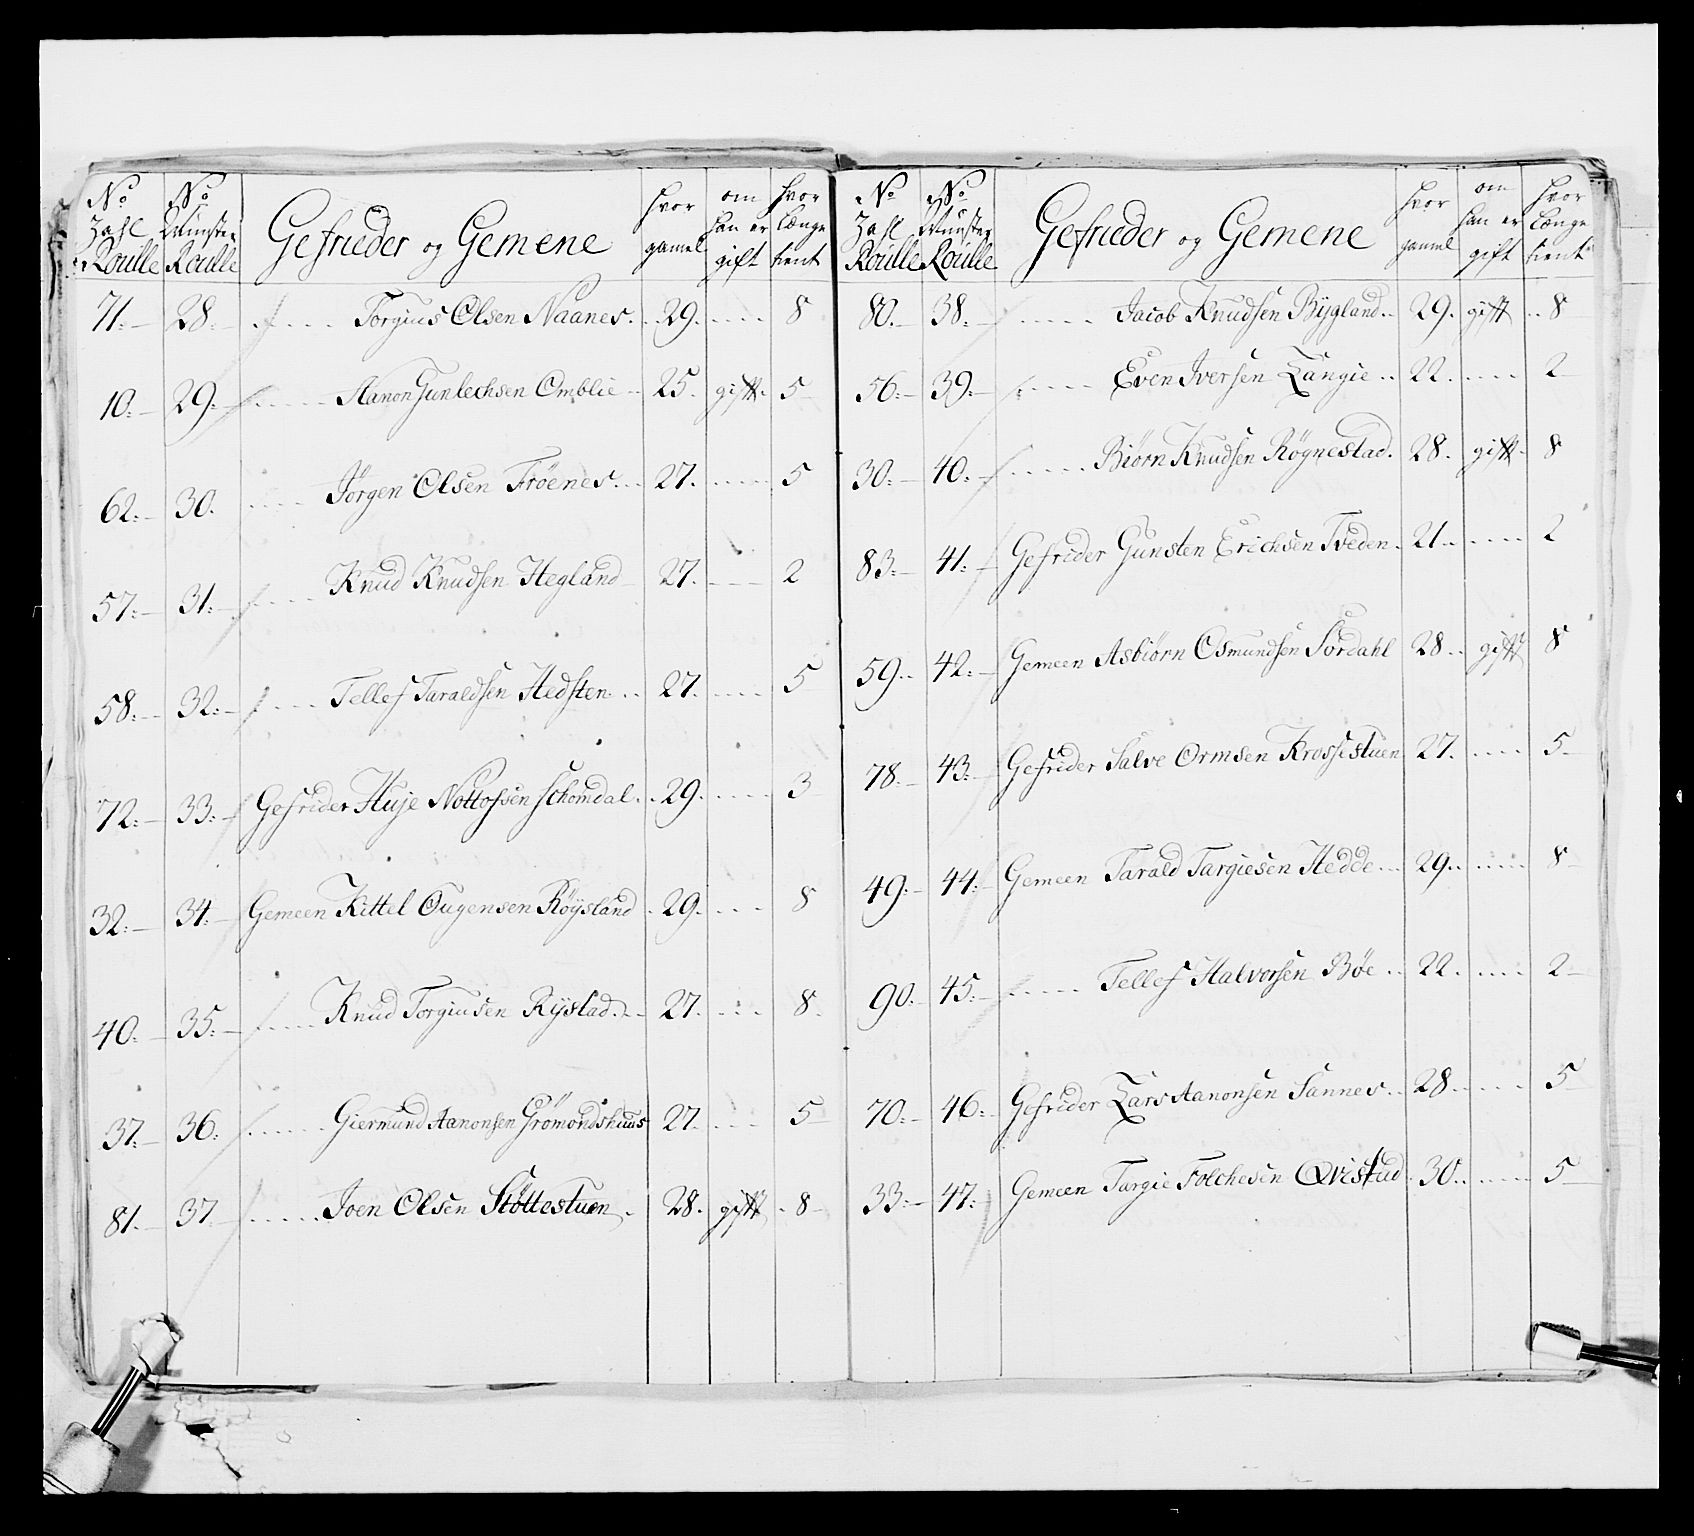 No Zahl Roulle | No Munster Roulle | Gefrieder og Gemene | hvor gamel | om han er gift | hvor længe tient
71. 28. Torgius Olsen Naanes. 29. 8
10. 29. Aanon Gunlechsen Omblie 25. gift. 5
62. 30. Jörgen Olsen Fröenes. 27. 5
57. 31. Knud Knudsen Hegland 27. 2
58. 32. Tellef Taraldsen Hedsten 27. 5
72. 33. Gefrider Huje Nottofsen Schomdal. 29. 3
32. 34. Gemeen Kittel Ougensen Röysland 29. 8
40. 35. Knud Torgiusen Rystad. 27. 8
37. 36. Giermund Aanonsen Grömondshuus 27. 5
81. 37 Joen Olsen Støttestuen. 28. gift 8
No Zahl Roulle | No Munster Roulle | Gefrieder og Gemene | hvor gamel | om han er gift | hvor længe tient
80. 38. Jacob Knudsen Bygland. 29. gift 8
56. 39. Even Iversen Langie 22. 2
30. 40. Biørn Knudsen Rögnestad. 28. gift. 8
83. 41. Gefrider Gunsten Erichsen Tveden. 21. 2
59. 42. Gemeen Asbiørn Osmundsen Sordahl 28. gift 8
78. 43. Gefrider Salve Ormsen Krossestuen 27. 5
49. 44. Gemeen Tarald Targiesen Hedde 29. 8
90. 45. Tellef Halvorsen Bøe 22. 2
70. 46. Gefrider Lars Aanonsen Sannes 28. 5
33. 47. Gemeen Targie Folchesen Qvistad 30. 5